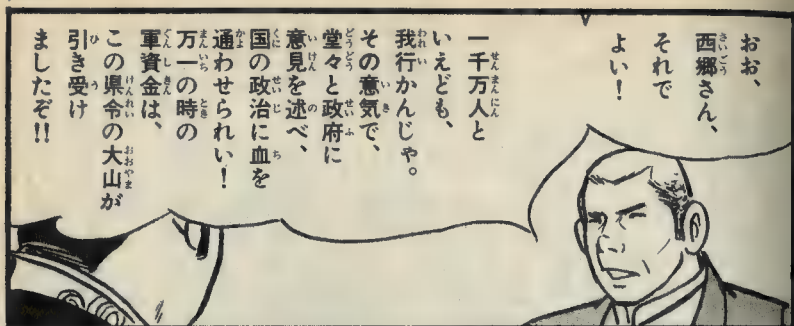 おお、
西郷さん、
それで
よい！
一千万人と
いえども、
我行かんじゃ。
その意気で、
堂々と政府に
意見を述べ、
国の政治に血を
通わせられい！
万一の時の
軍資金は、
この県令の大山が
引き受け
ましたぞ!!